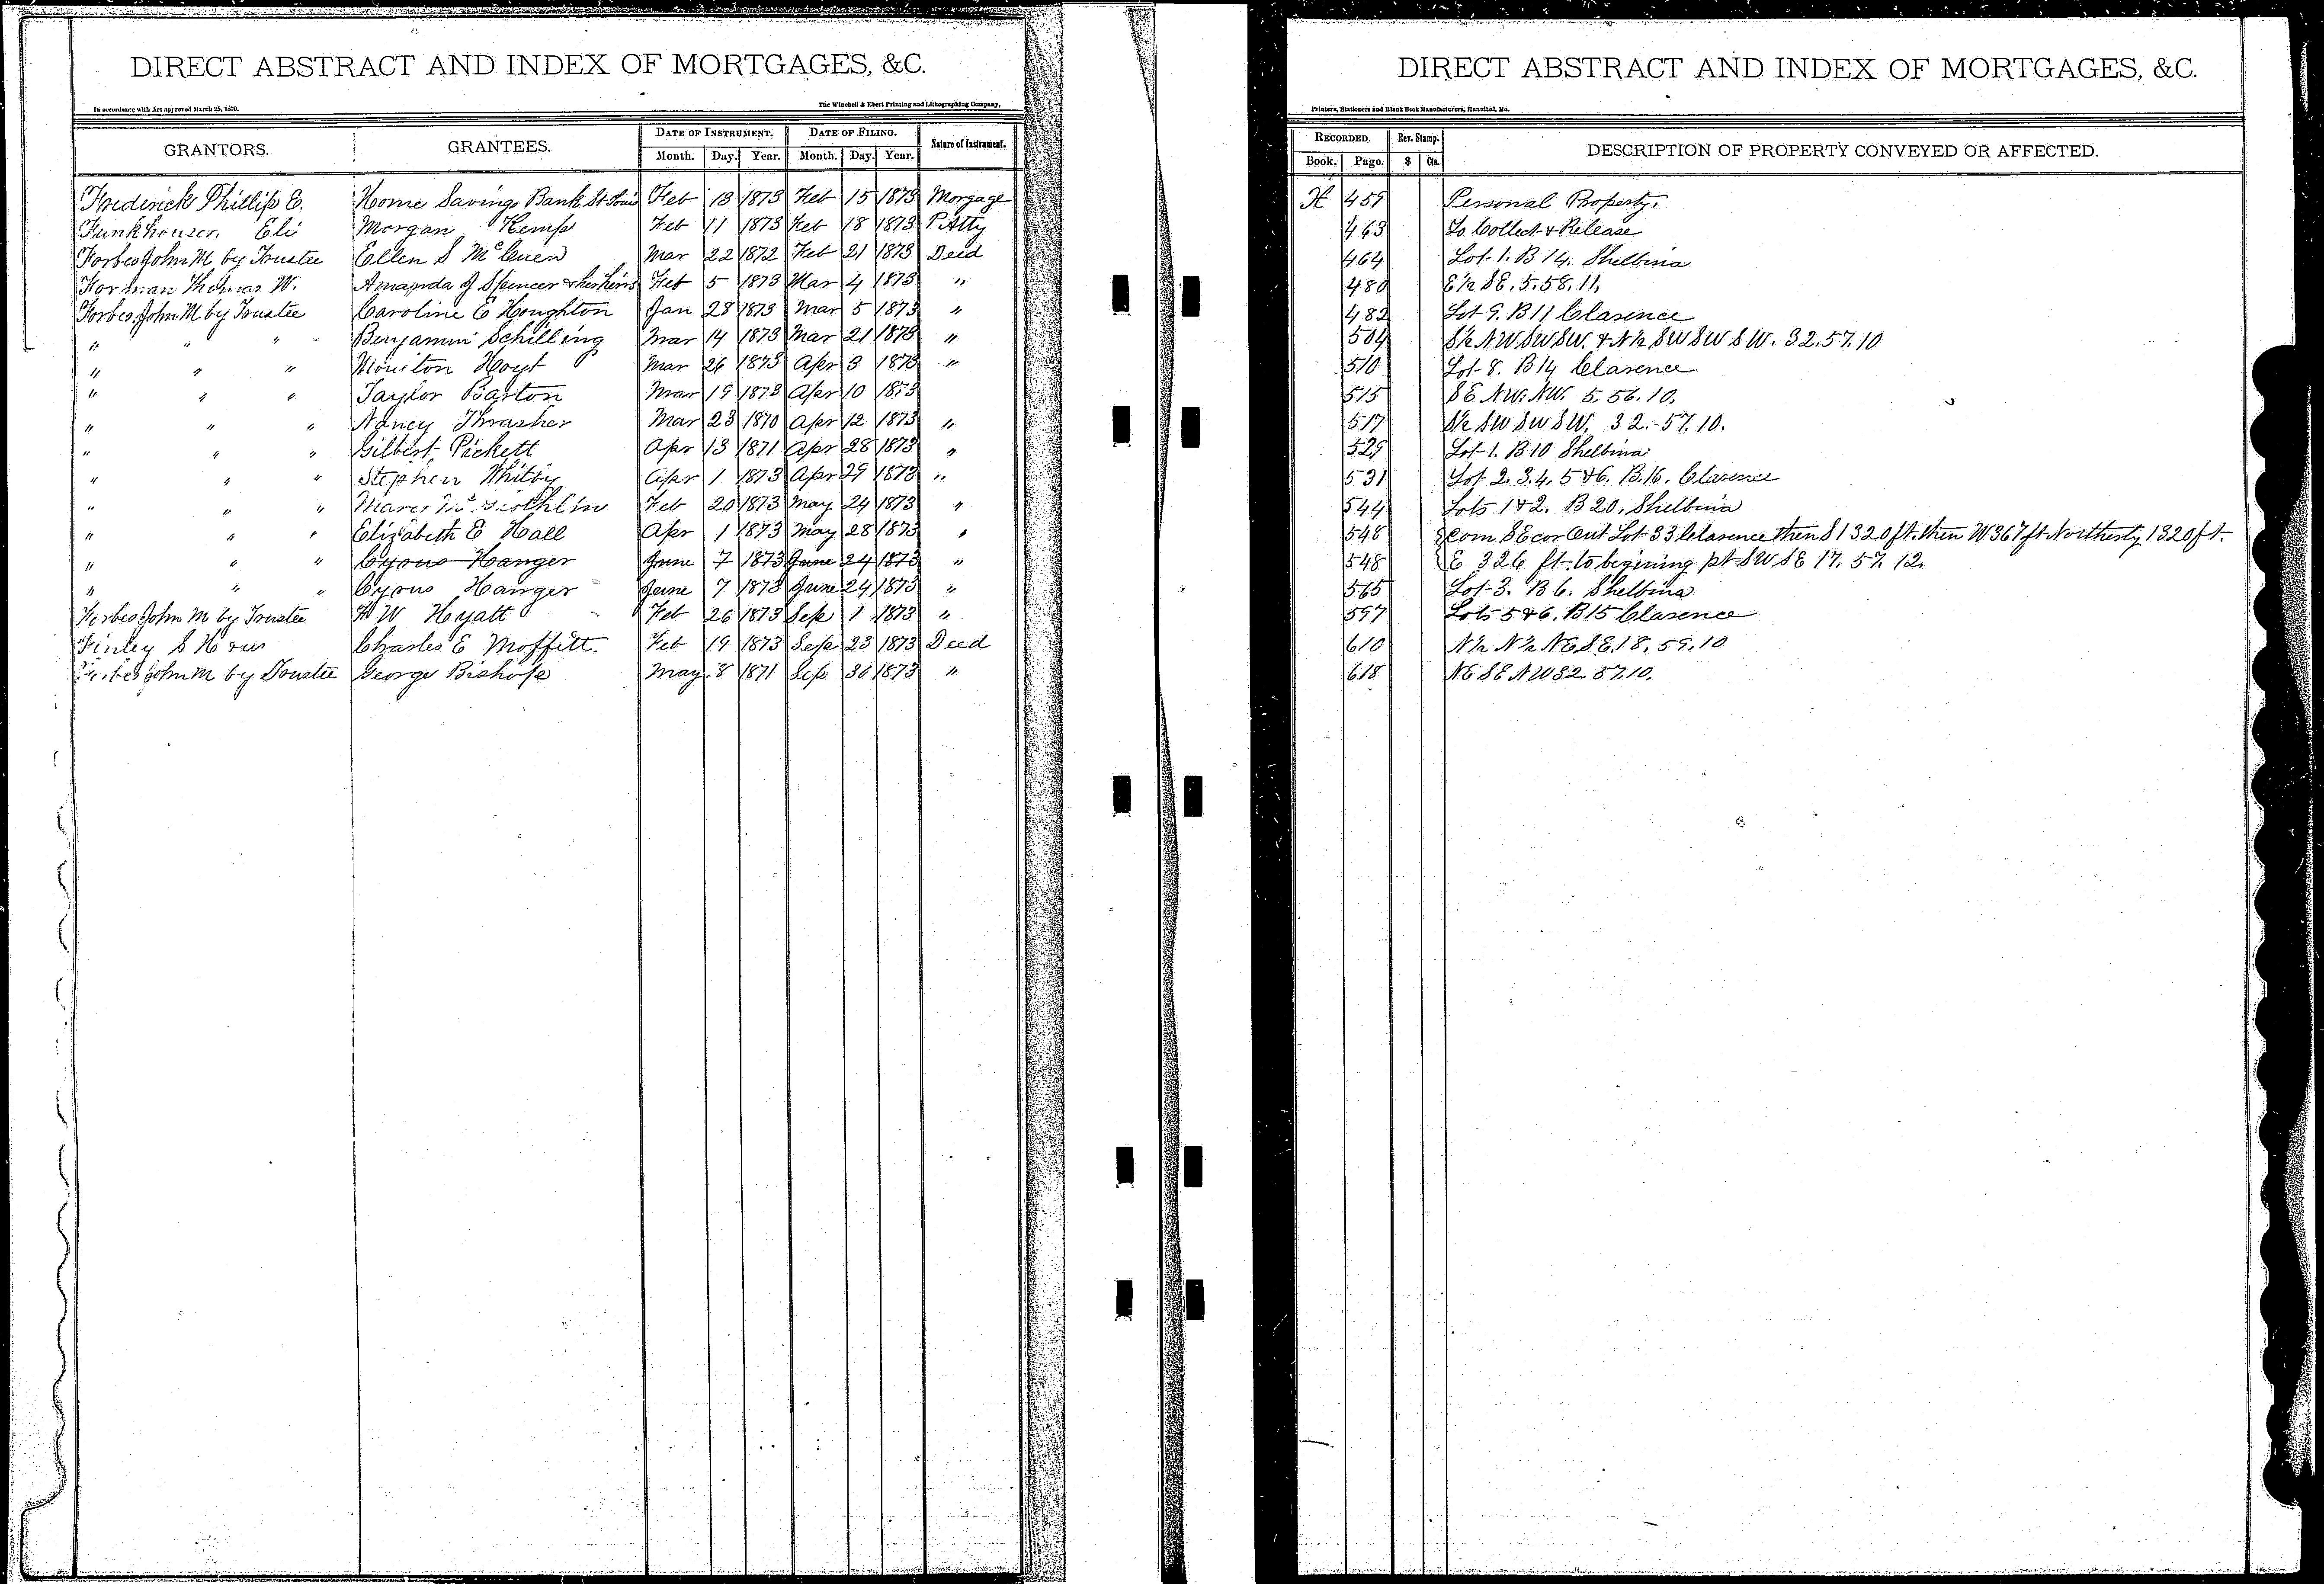 DIRECT ABSTRACT AND INDEX OF MORTGAGES, &C.
In accordance with Act approved March 25, 1870. The Winchell & Ebert Printing and Lithographing Company,
GRANTORS. GRANTEES. DATE OF INSTRUMENT. DATE OF FILING. Nature of Instrument.
Month. Day. Year. Month. Day. Year.
Frederick Phillip E. Home Savings Bank St Louis Feb 13 1873 Feb 15 1873 Morgage
Funkhouser, Eli Morgan Kemp Feb 11 1873 Feb 18 1873 P. Atty
Forbes John M by Trustee Ellen S McCuen Mar 22 1872 Feb 21 1873 Deed
Forman Thomas W. Amanda J Spencer & her heirs Feb 5 1873 Mar 4 1873 "
Forbes John M by Trustee Caroline E Houghton Jan 28 1873 Mar 5 1873 "
" " " Benjamin Schilling Mar 14 1873 Mar 21 1873 "
" " " Hoyt Mar 26 1873 Apr 3 1873 "
" " " Taylor Barton Mar 19 1873 Apr 10 1873
" " " Nancy Thrasher Mar 23 1870 Apr 12 1873 "
" " " Gilbert Pickett Apr 13 1871 Apr 28 1873 "
" " " Stephen Whitby Apr 1 1873 Apr 29 1873 "
" " " Feb 20 1873 May 24 1873 "
" " " Elizabeth E Hall Apr 1 1873 May 28 1873 "
" " " Cyrus Hanger June 7 1873 June 24 1873 "
" " " Cyrus Hanger June 7 1873 June 24 1873 "
Forbes John M by Trustee H W Hyatt Feb 26 1873 Sep 1 1873 "
Finley S H Charles E Moffett. Feb 19 1873 Sep 23 1873 Deed
Forbes John M by Trustee George Bishop May 8 1871 Sep 30 1873 "
DIRECT ABSTRACT AND INDEX OF MORTGAGES, &C.
Printers, Stationers and Blank Book Manufacturers, Hannibal, Mo.
RECORDED. Rev. Stamp. DESCRIPTION OF PROPERTY CONVEYED OR AFFECTED.
Book. Page. $ Cts.
H 459 Personal Property.
463 To Collect & Release
464 Lot 1. B 14. Shelbina
480 E½ SE. 5. 58. 11,
482 Lot 9. B 11 Clarence
504 S½ NW SW SW. & N½ SW SW SW. 32. 57. 10
510 Lot 8. B 14 Clarence
515 SE NW. NW. 5. 56. 10.
517 S½ SW SW SW. 32. 57. 10.
529 Lot 1. B 10 Shelbina
531 Lot 2. 3. 4. 5 & 6. B. 16. Clarence
544 Lots 1 & 2. B 20. Shelbina
548 Com SE cor Out Lot 33 Clarence then S 1320 ft. then W 367 ft Northerly 1320 ft.
548 E 326 ft. to begining pt SW SE 17. 57. 12.
565 Lot 3. B 6. Shelbina
597 Lots 5 & 6. B 15 Clarence
610 N½ N½ NE. SE. 18. 59. 10
618 NE SE NW 32. 57. 10.